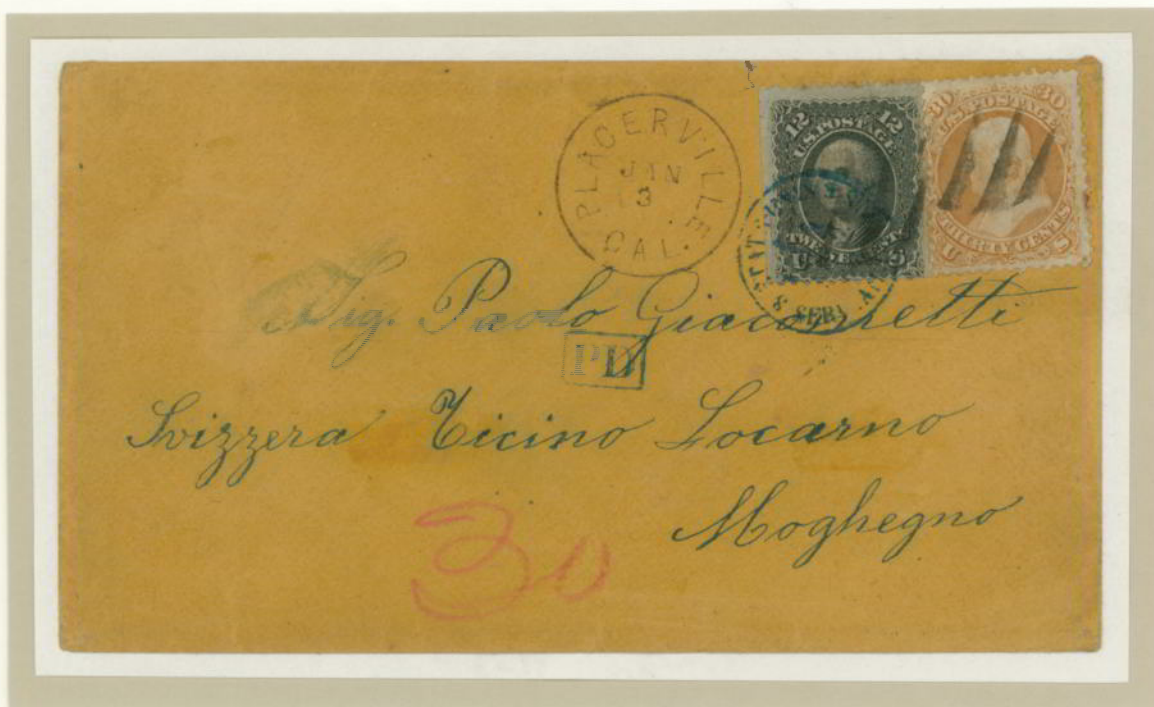 PLACERVILLE CAL.
JAN
13
12 12
U.S. POSTAGE
TWELVE CENTS
U S
30 30
U.S. POSTAGE
THIRTY CENTS
U S
& SERV.
Sig. Paolo Giacometti
PD
Svizzera Ticino Locarno
Moghegno
30